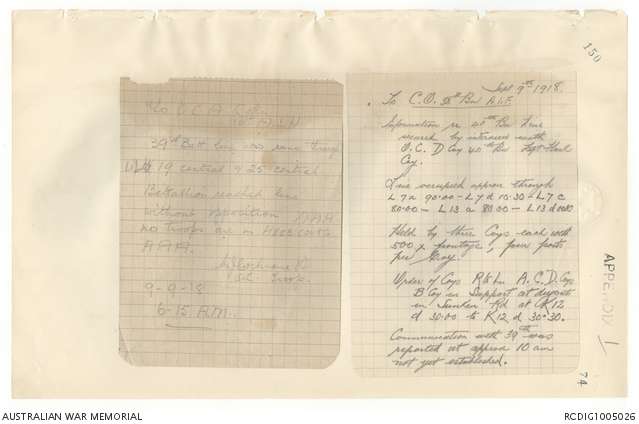 150
To O.C. A.
39th Batt line now runs through
19 central & 25 central
Battallion reached line
without opposition
no troops are on
9-9-18
6-15 A.M.
Sept 9th 1918.
To C.O. 38th Bn A.I.F.
Information re 40th Bn Line
secured by interview with
O.C. D Coy 40th Bn Left Flank
Coy.
Line occupied approx through
L7a 90.00 - L7d 10.30 - L7c
80.00 - L13a 80.00 - L13d
Held by three Coys each with
500 x frontage, four posts
per Coy.
Order of Coys R to L A. C. D. Coys
B Coy in Support at dugouts
in Sunken Rd at K12
d 30.00 to K12 d 30.30.
Communication with 39th was
reported at approx 10 am
not yet established.
APPEND 1
74
AUSTRALIAN WAR MEMORIAL
RCDIG1005026